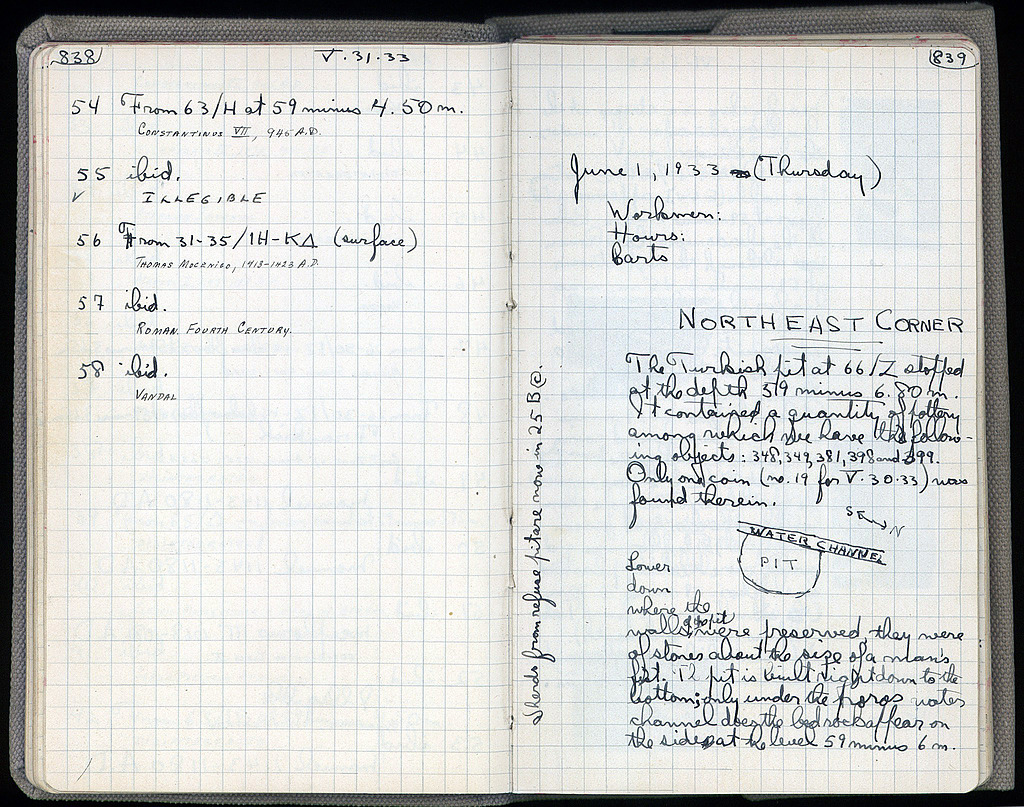 838
V.31.33
54 From 63/H at 59 minus 4.50 m.
CONSTANTINUS VII, 945 A.D.
55 ibid.
✓ ILLEGIBLE
56 From 31-35/IH-KΔ (surface)
THOMAS MOCENIGO, 1413-1423 A.D.
57 ibid.
ROMAN. FOURTH CENTURY.
58 ibid.
VANDAL
839
June 1, 1933 (Thursday)
Workmen:
Hours:
Carts
NORTHEAST CORNER
The Turkish pit at 66/Z stopped
at the depth 59 minus 6.80 m.
It contained a quantity of pottery
among which we have the follow-
ing objects: 348, 349, 381, 398 and 399.
Only one coin (no. 19 for V.30.33) was
found therein.
SE N
WATER CHANNEL
PIT
Lower
down
where the
walls of the pit were preserved, they were
of stones about the size of a man's
fist. The pit is built right down to the
bottom; only under the poros water
channel does the bedrock appear on
the side at the level 59 minus 6 m.
Sherds from refuse pit are now in 25 B@.